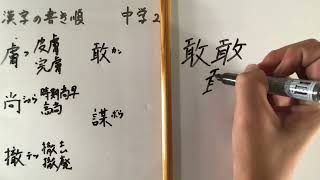 漢字の書き順　中学2
膚フ 皮膚
完膚
尚しょう 時期尚早
高尚
撤テツ 撤去
撤廃
敢カン
謀ボウ
敢敢